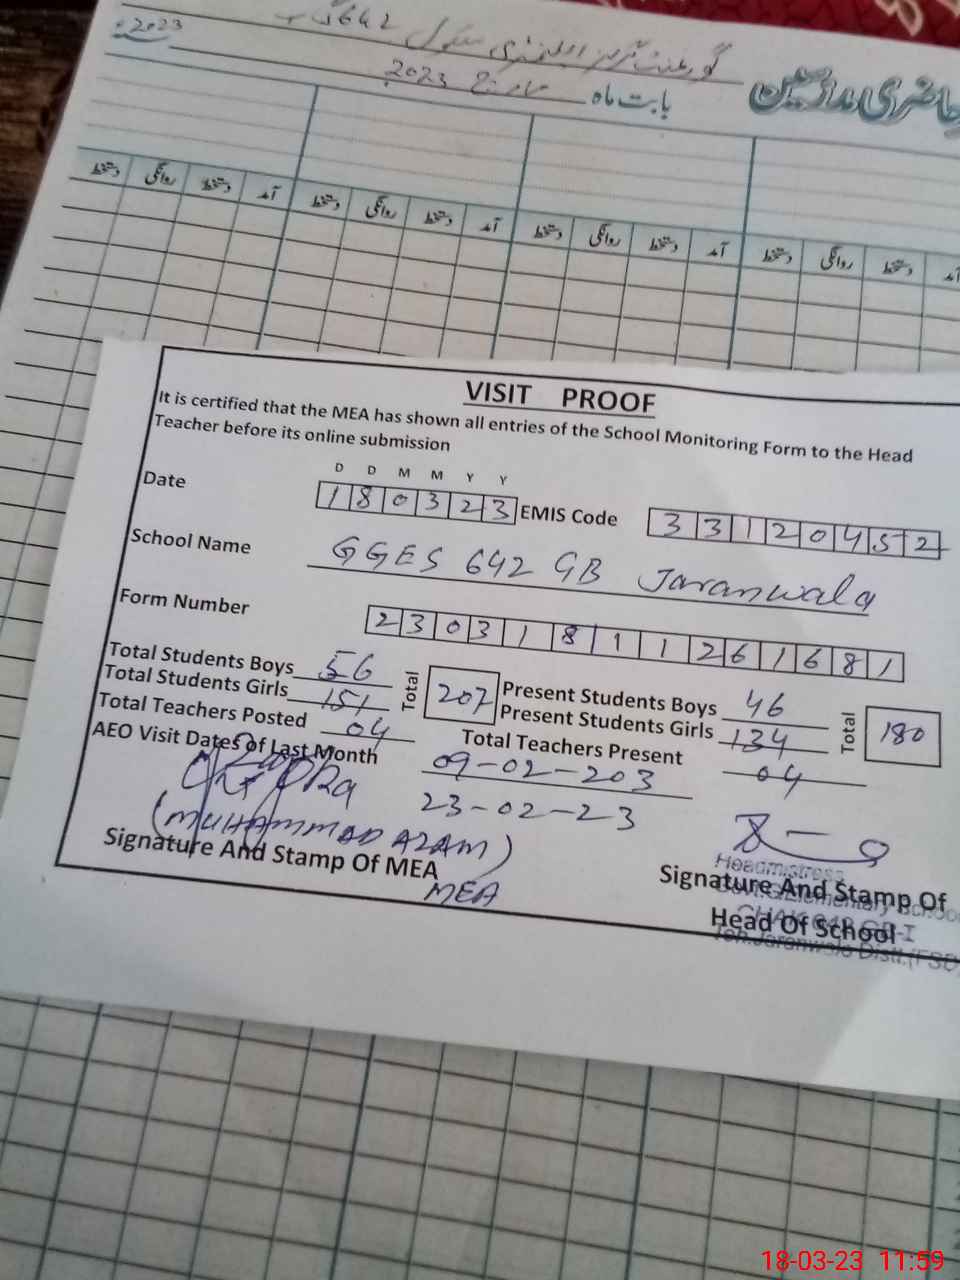 2023
گورنمنٹ گرلز ایلیمنٹری سکول 642 گ ب
حاضری مدرسین
بابت ماہ مارچ 2023
آمد دستخط روانگی دستخط آمد دستخط روانگی دستخط آمد دستخط روانگی دستخط آمد دستخط روانگی دستخط
VISIT PROOF
It is certified that the MEA has shown all entries of the School Monitoring Form to the Head
Teacher before its online submission
D D M M Y Y
Date 180323 EMIS Code 33120452
School Name GGES 642 GB Jaranwala
Form Number 23031811261681
Total Students Boys 56 Total 207 Present Students Boys 46 Total 180
Total Students Girls 151 Present Students Girls 134
Total Teachers Posted 04 Total Teachers Present 04
AEO Visit Dates of Last Month 09-02-203
23-02-23
(MUHAMMAD AZAM)
Signature And Stamp Of MEA
MEA
Signature And Stamp Of
Head Of School
Headmistress
Govt. G. Elementary School
Teh. Jaranwala Distt. (FSD)
18-03-23 11:59